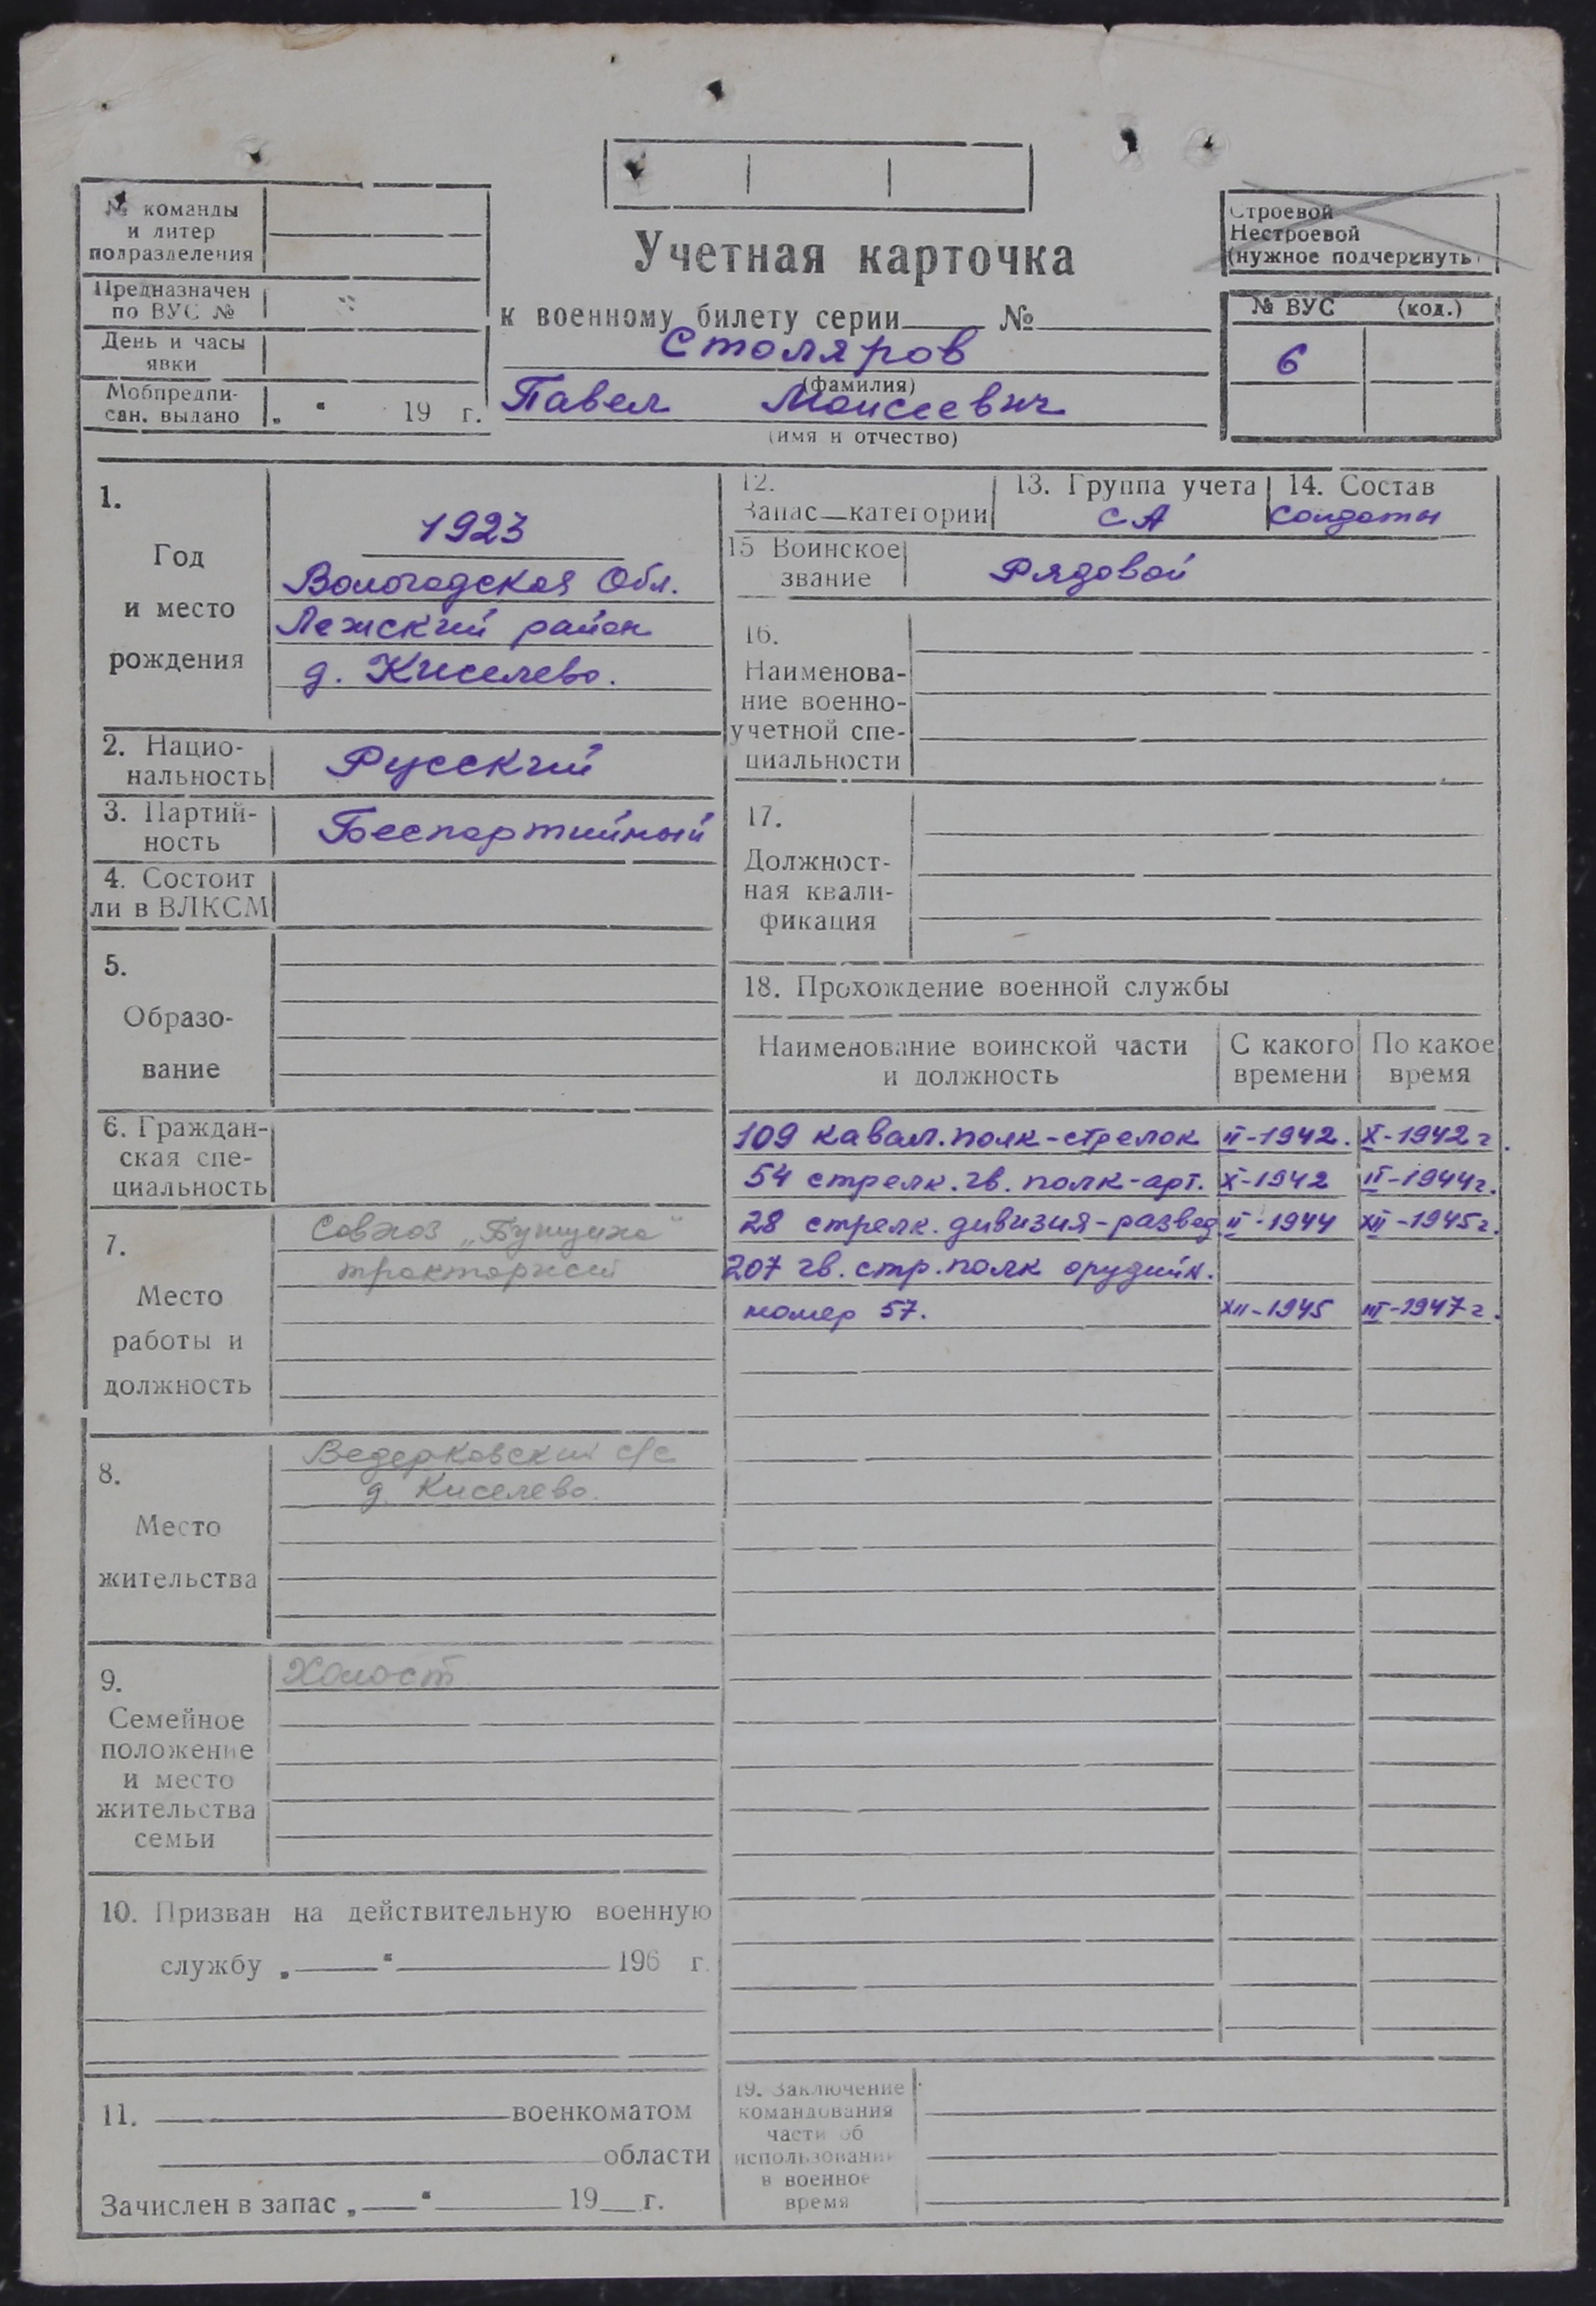 № команды
и литер
подразделения
Предназначен
по ВУС №
День и часы
явки
Мобпредпи-
сан. выдано „ “ 19 г.
Учетная карточка
к военному билету серии №
Столяров
(фамилия)
Павел Моисеевич
(имя и отчество)
Строевой
Нестроевой
(нужное подчеркнуть)
№ ВУС (код.)
6
1.
Год
и место
рождения
1923
Вологодская Обл.
Лежский район
д. Киселево.
2. Нацио-
нальность
Русский
3. Партий-
ность
Беспартийный
4. Состоит
ли в ВЛКСМ
5.
Образо-
вание
6. Граждан-
ская спе-
циальность
7.
Место
работы и
должность
Совхоз
8.
Место
жительства
Ведерковский с/с
д. Киселево.
9.
Семейное
положение
и место
жительства
семьи
Холост
10. Призван на действительную военную
службу „ “ 196 г.
11. военкоматом
области
Зачислен в запас „ “ 19 г.
12.
Запас—категории
13. Группа учета
СА
14. Состав
солдаты
15 Воинское
звание
Рядовой
16.
Наименова-
ние военно-
учетной спе-
циальности
17.
Должност-
ная квали-
фикация
18. Прохождение военной службы
Наименование воинской части
и должность
С какого
времени
По какое
время
109 кавал. полк-стрелок II-1942. X-1942 г.
54 стрелк. гв. полк-арт. X-1942 II-1944г.
28 стрелк. дивизия-развед II-1944 XII-1945г.
207 гв. стр. полк орудийн.
номер 57. XII-1945 III-1947 г.
19. Заключение
командования
части об
использовании
в военное
время